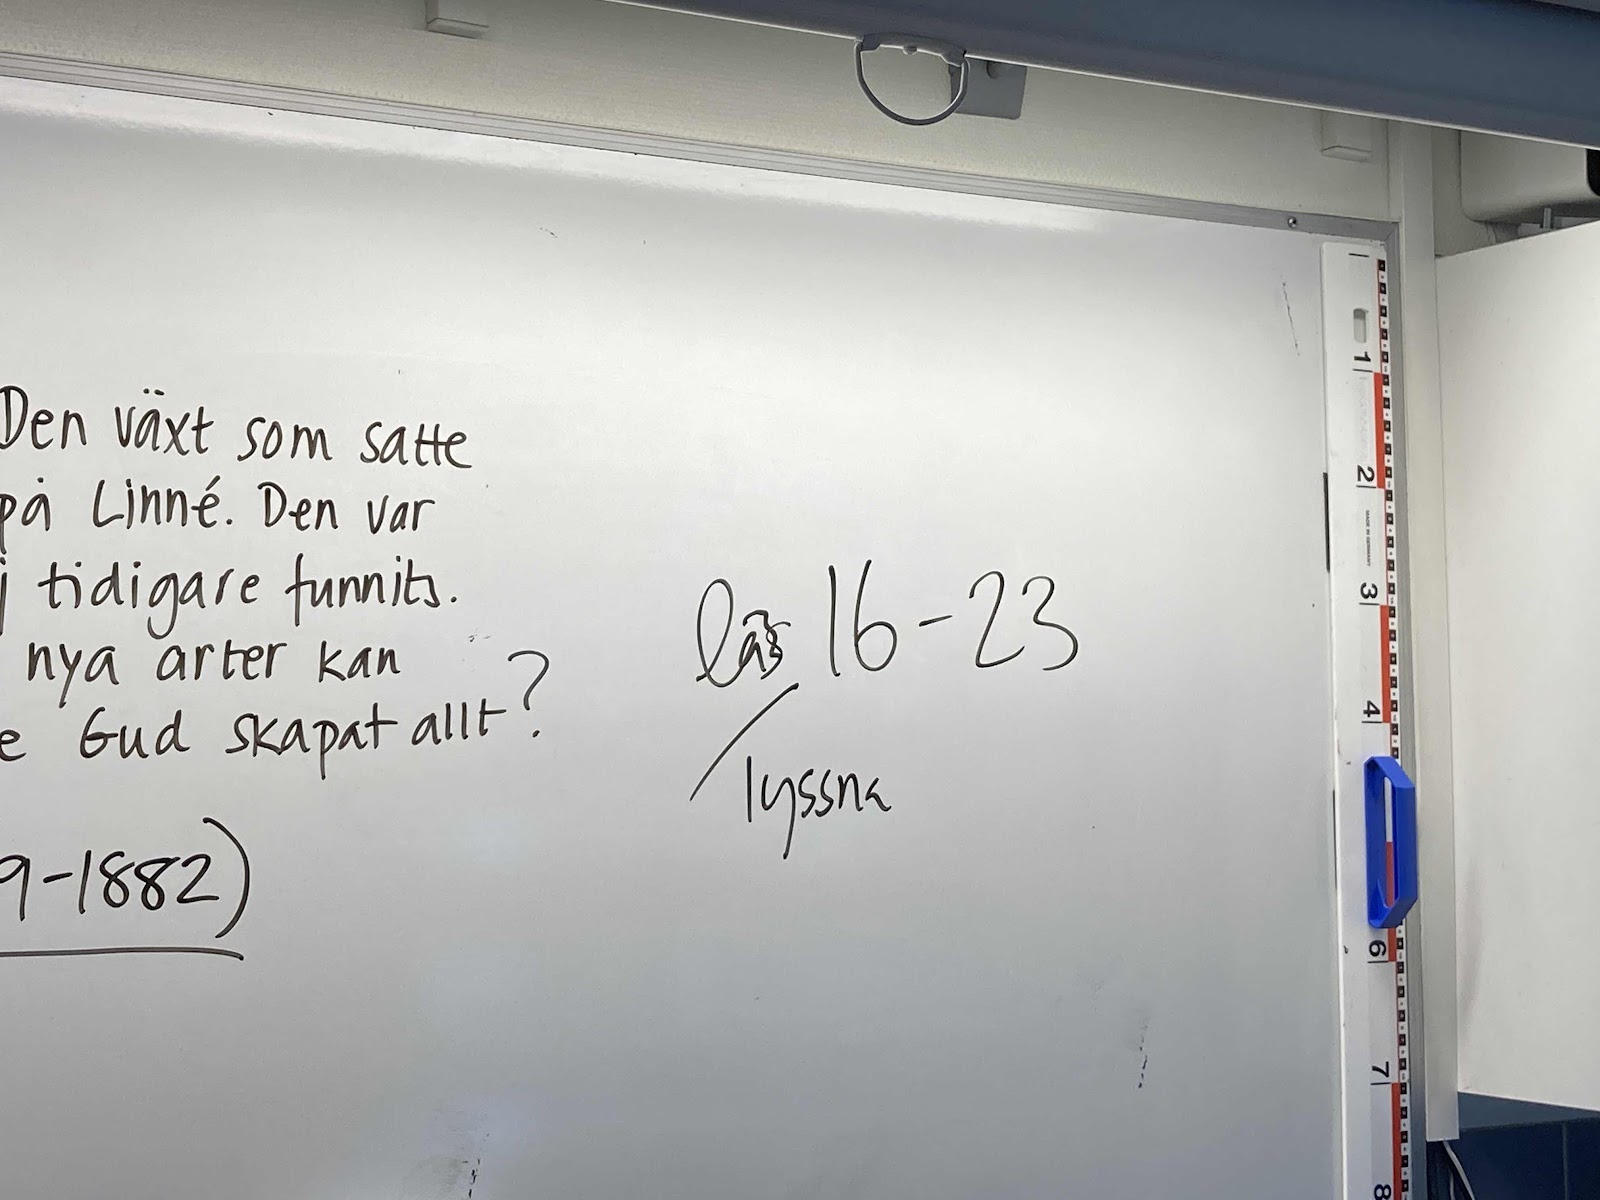 Den växt som satte
på Linné. Den var
j tidigare funnits.
nya arter kan
e Gud skapat allt?
9-1882)
läs 16-23
/lyssna
1
2
MADE IN GERMANY
3
4
6
7
8